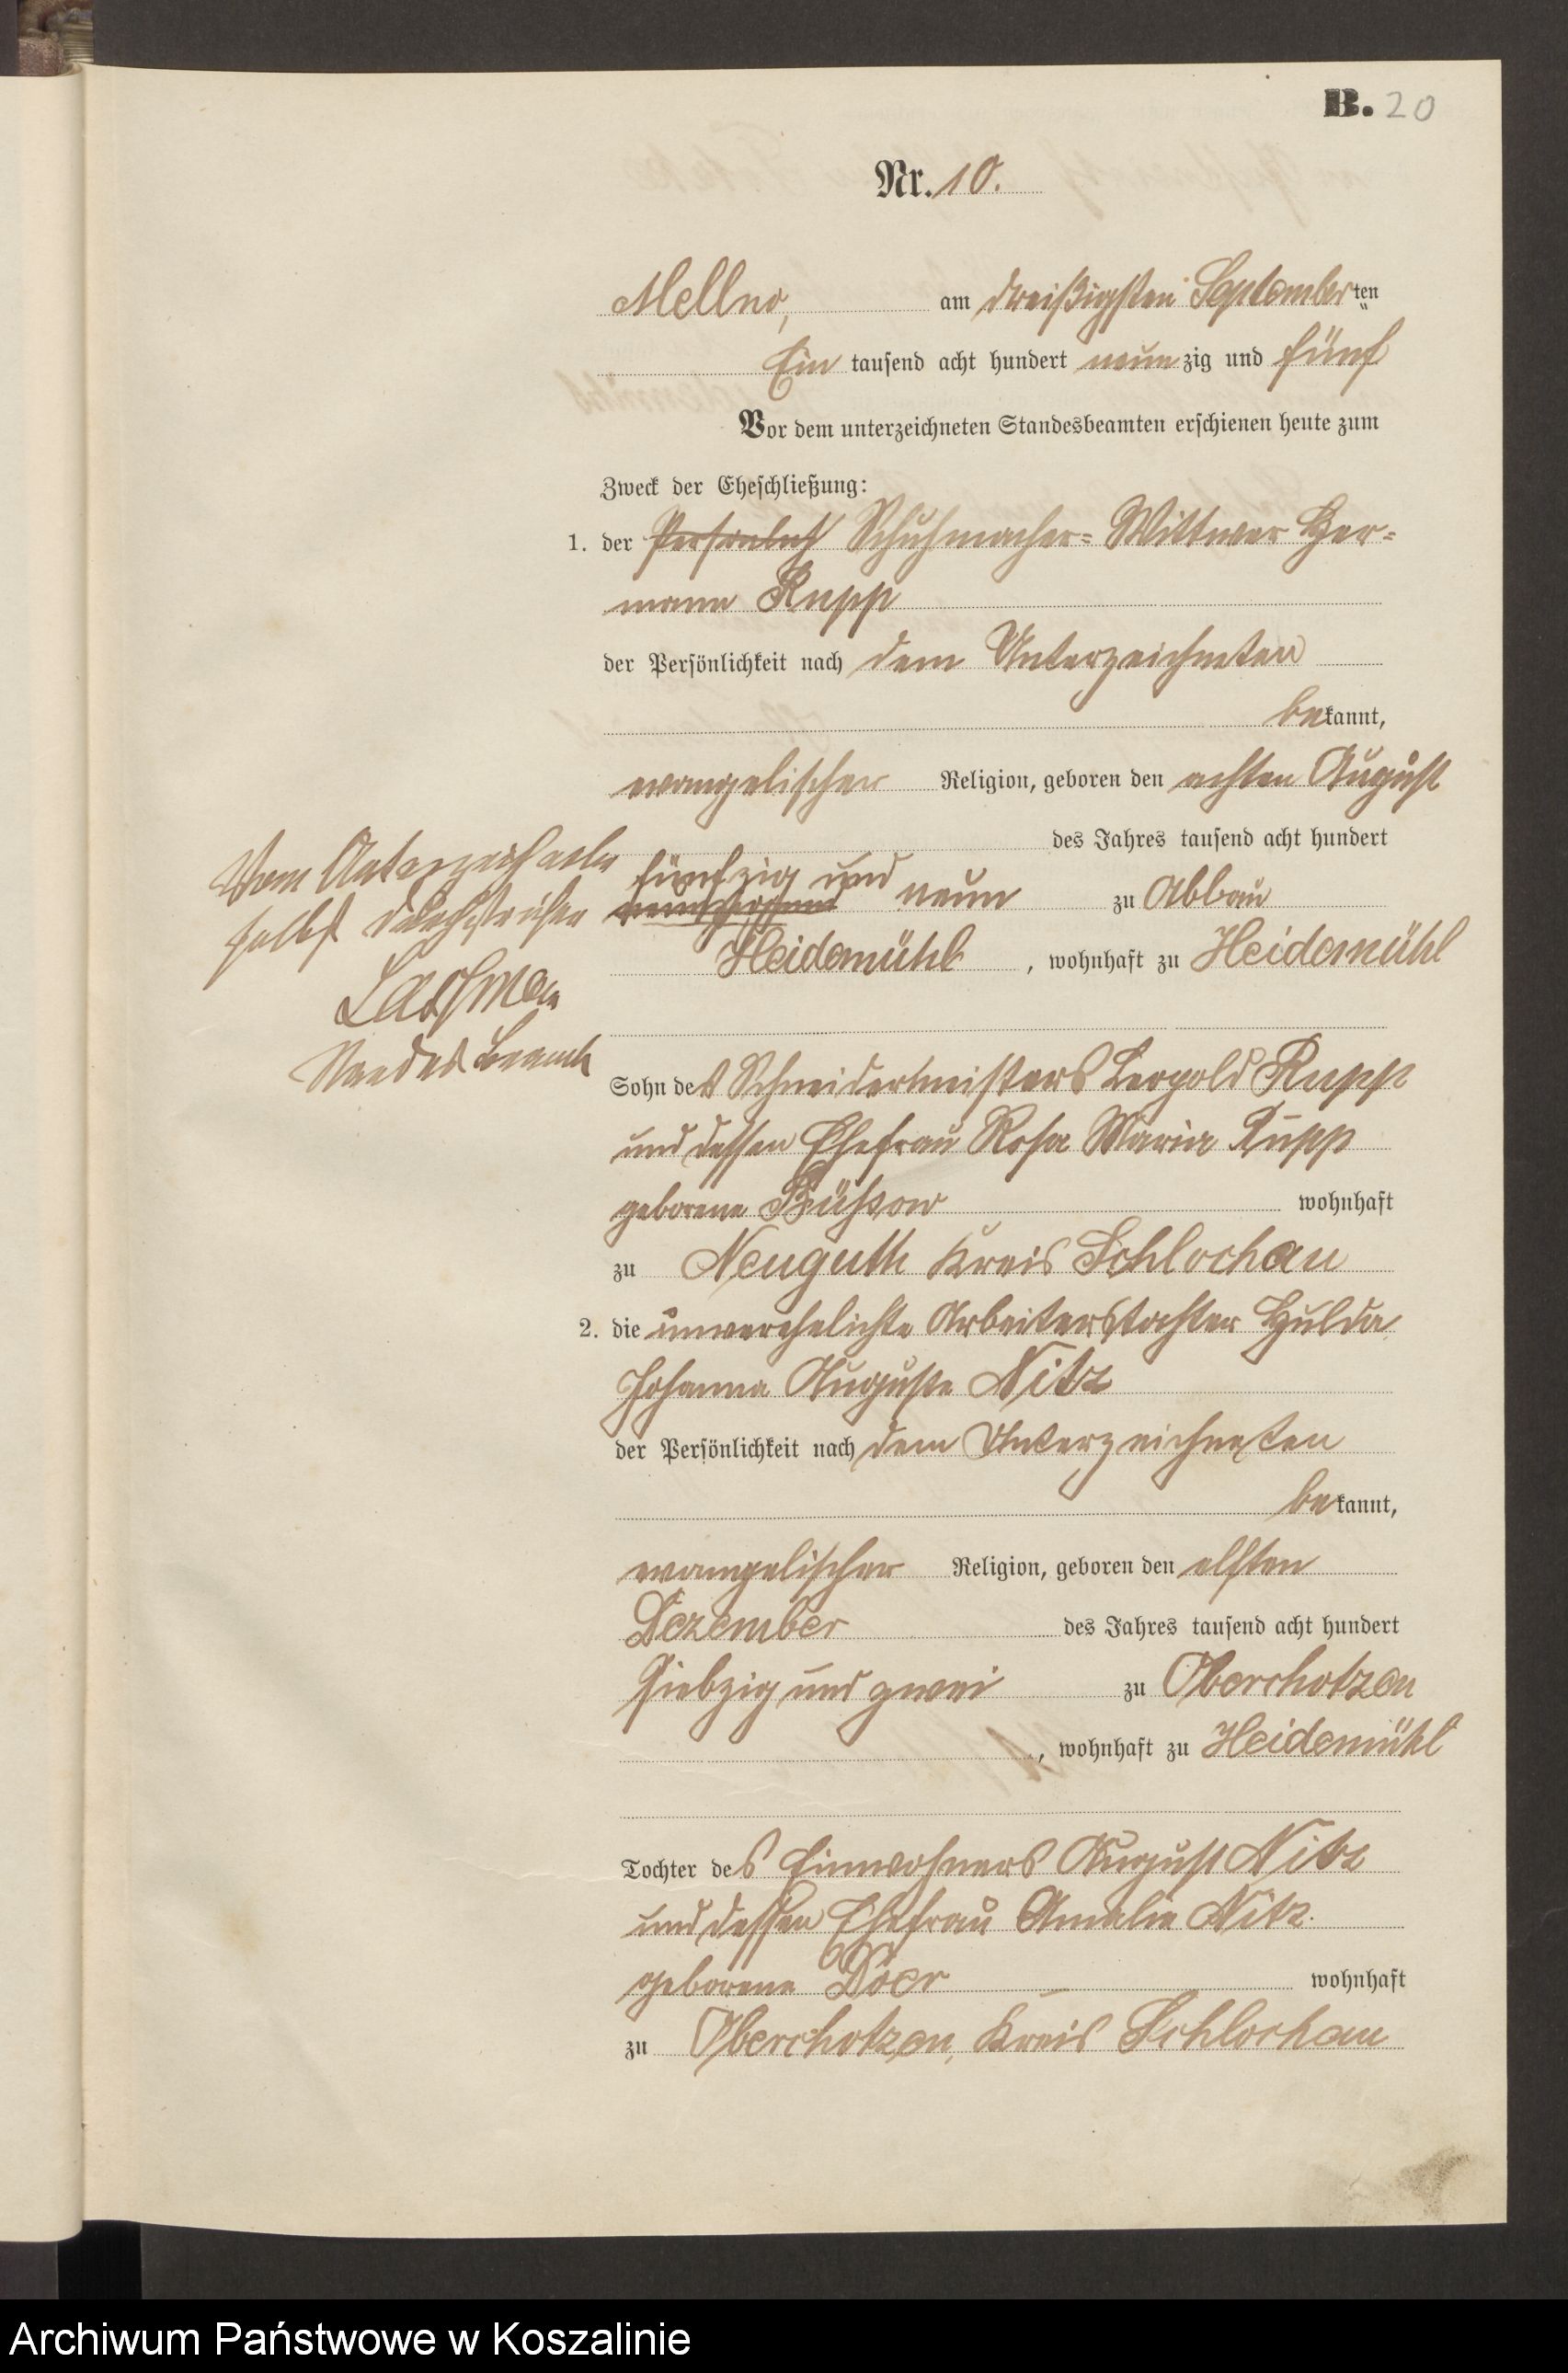 B. 20
Nr. 10.
Mellno, am dreißigsten September ten
Ein tausend acht hundert neunzig und fünf
Vor dem unterzeichneten Standesbeamten erschienen heute zum
Zweck der Eheschließung:
1. der Schuhmacher= Wittwer Her=
mann Rupp
der Persönlichkeit nach dem Unterzeichneten
bekannt,
evangelischer Religion, geboren den achten August
des Jahres tausend acht hundert
fünfzig und
neun zu Abbau
Heidemühl, wohnhaft zu Heidemühl
Vom Unterzeichneten
selbst durchstrichen
Standes Beamte
Sohn des Schneidermeisters Leopold Rupp
und dessen Ehefrau Rosa Maria Rupp
geborene wohnhaft
zu Neuguth Kreis Schlochau
2. die unverehelichte Arbeiterstochter Hulda
Johanna Auguste Nitz
der Persönlichkeit nach dem Unterzeichneten
bekannt,
evangelischer Religion, geboren den elften
Dezember des Jahres tausend acht hundert
siebzig und zwei zu Oberchotzen
, wohnhaft zu Heidemühl
Tochter des Einwohners August Nitz
und dessen Ehefrau Amalie Nitz.
geborene Döer wohnhaft
zu Oberchotzen, Kreis Schlochau
Archiwum Państwowe w Koszalinie